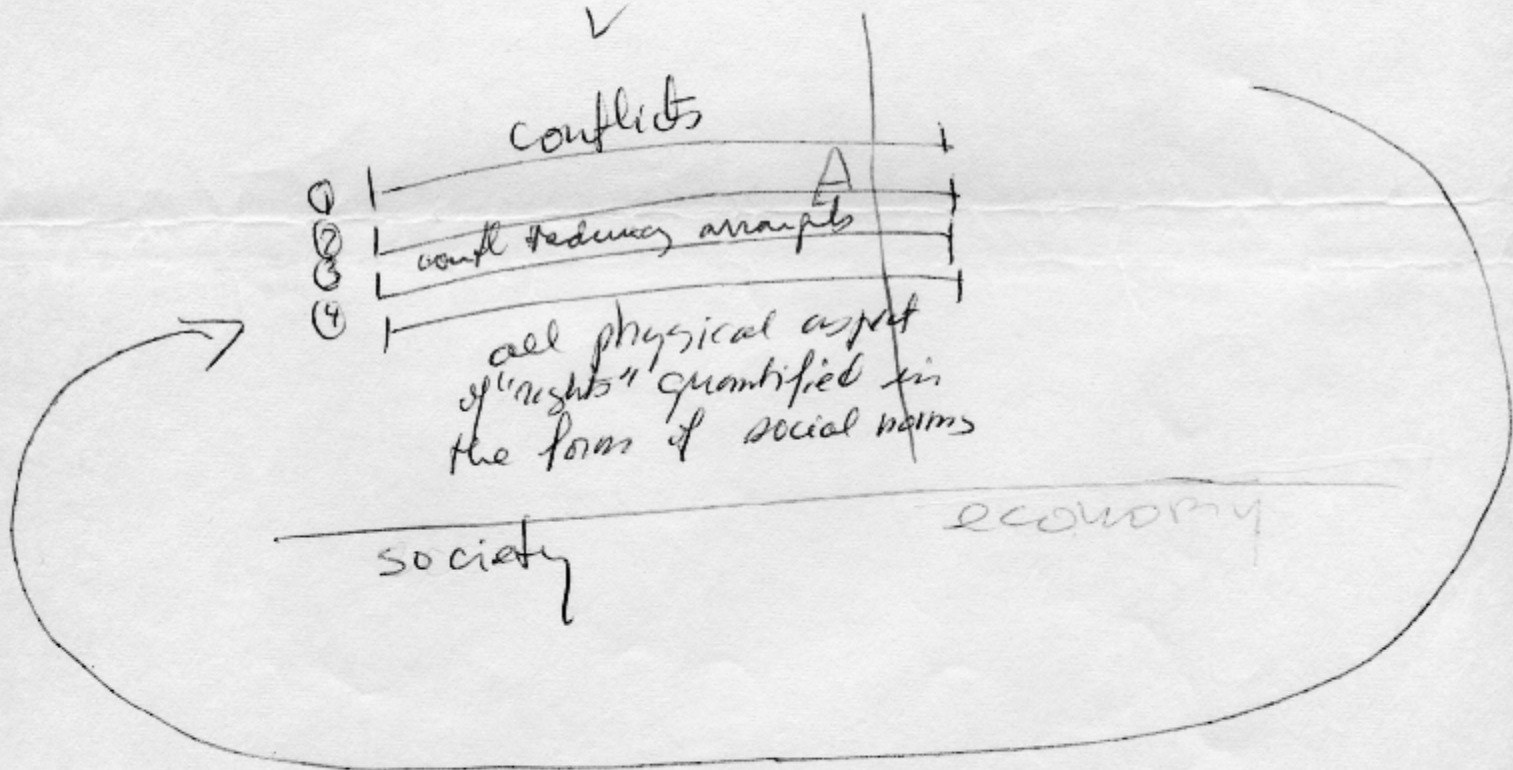 conflicts
① A
② confl reducing arrangts
③
④
all physical aspect
of "rights" quantified in
the form of social norms
economy
society